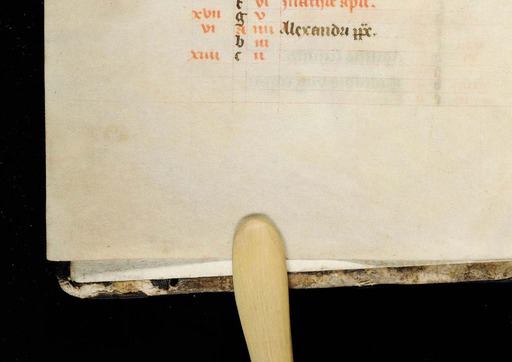 f vi Mathie apli.
xvii g v
vi A iiii Alexandri ppe.
b iii
xiiii c ii